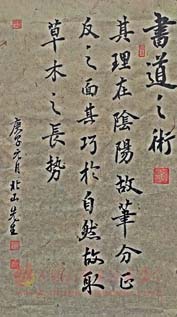 書道之術
其理在陰陽故筆分正
反之面其巧於自然故取
草木之長勢
庚子元月北山先生